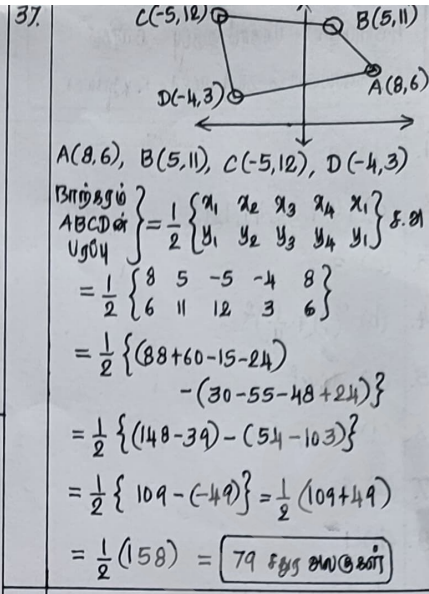 37.
C(-5,12) B(5,11)
A(8,6)
D(-4,3)
A(8,6), B(5,11), C(-5,12), D(-4,3)
நாற்கரம்
ABCDன்
பரப்பு
} = 1/2 { x₁ x₂ x₃ x₄ x₁
y₁ y₂ y₃ y₄ y₁ } ச.அ
= 1/2 { 8 5 -5 -4 8
6 11 12 3 6 }
= 1/2 {(88+60-15-24)
-(30-55-48+24)}
= 1/2 {(148-39) - (54-103)}
= 1/2 { 109 - (-49)} = 1/2 (109+49)
= 1/2 (158) = 79 சதுர அலகுகள்